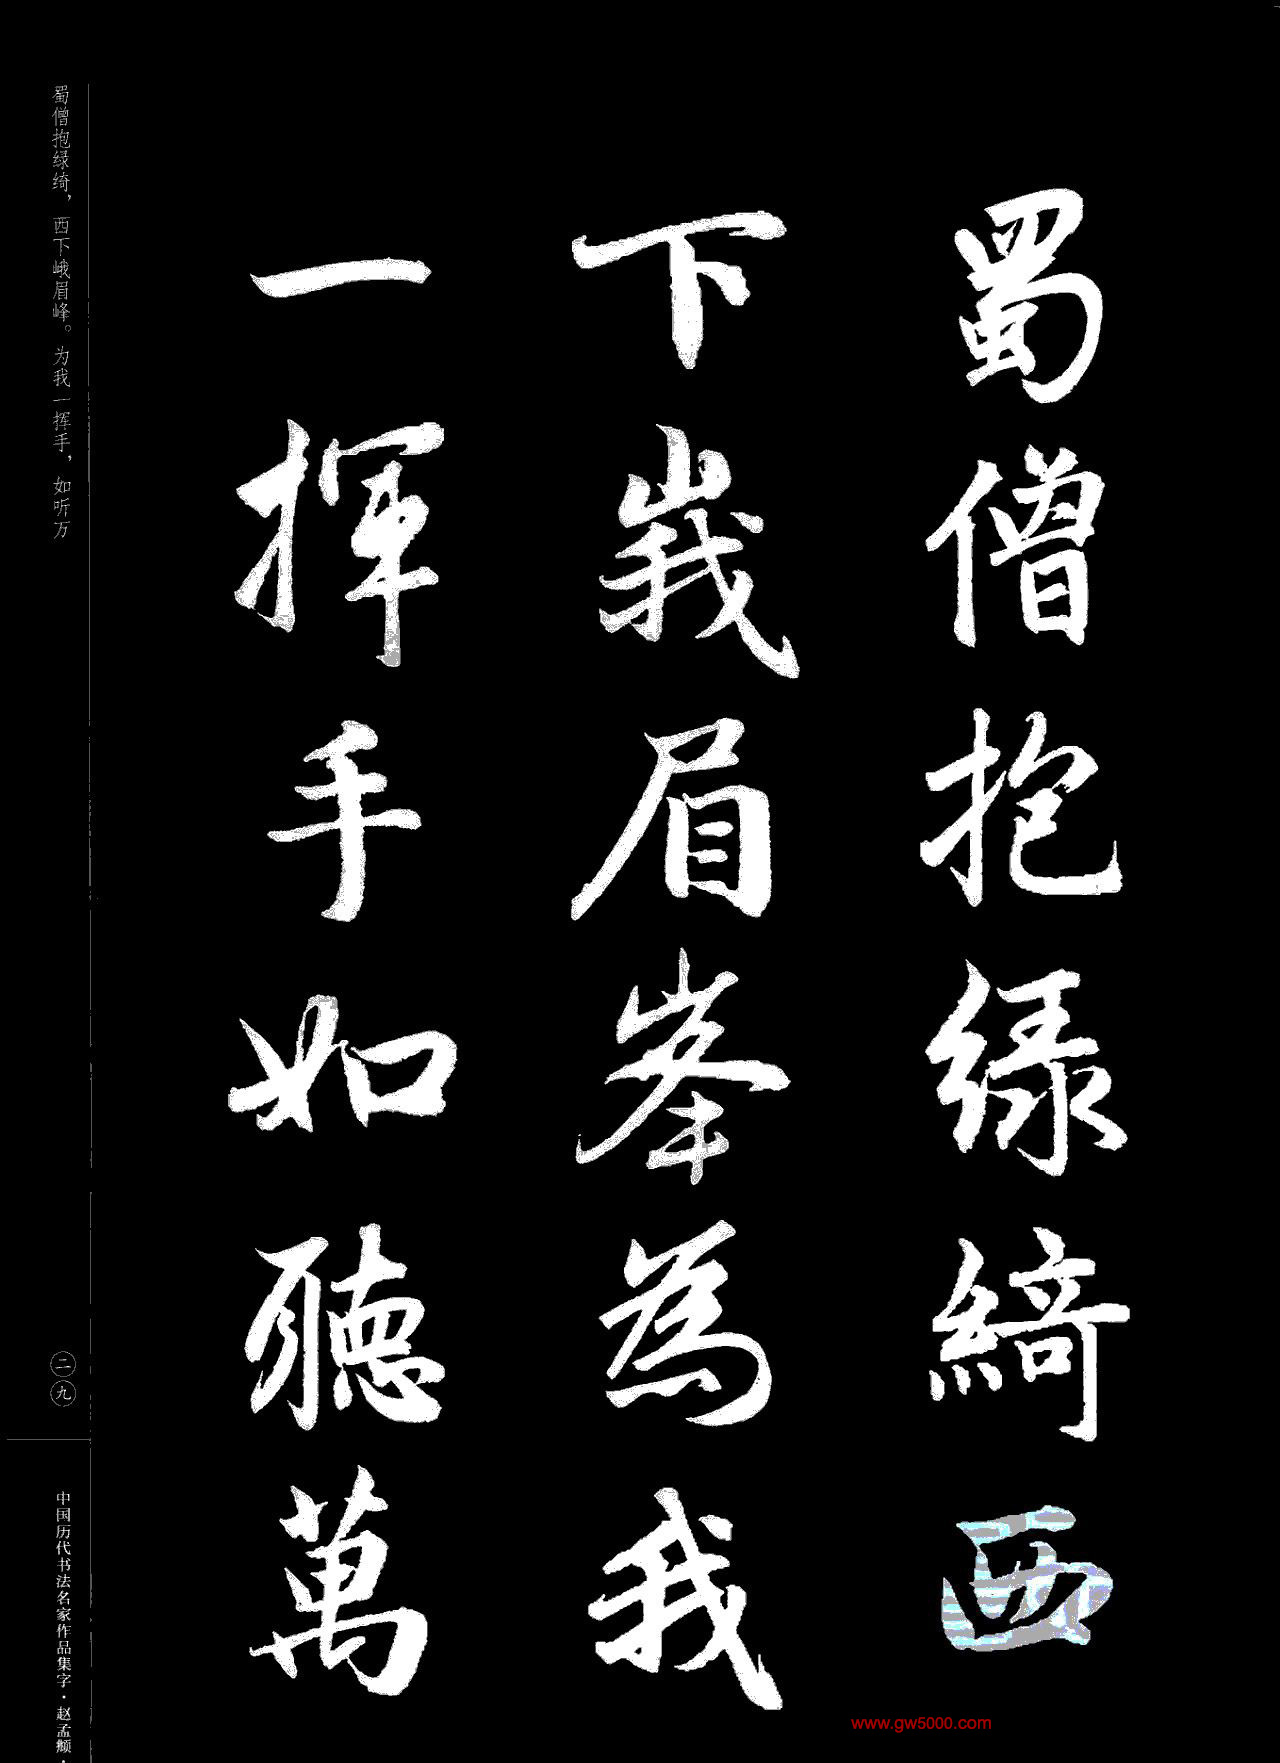 蜀僧抱綠綺西
下峩眉峯為我
一揮手如聽萬
蜀僧抱绿绮，西下峨眉峰。为我一挥手，如听万
二九
中国历代书法名家作品集字·赵孟頫·
www.gw5000.com